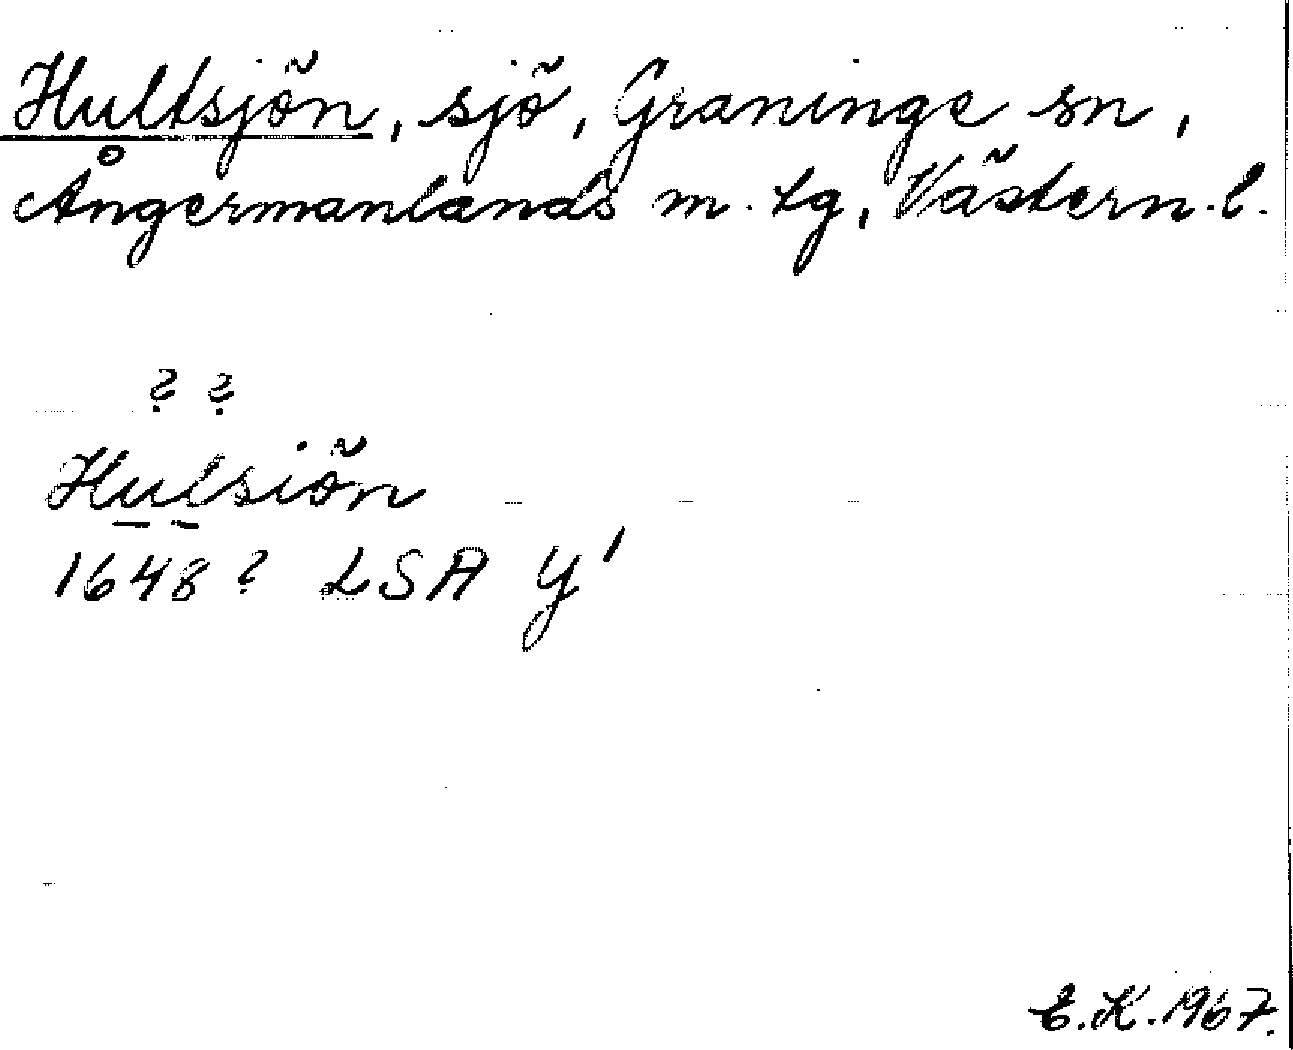 Hultsjön, sjö, Graninge sn,
Ångermanlands m. tg, Västern. l.
? ?
Hulsiön
1648? LSA Y'
E.K. 1967.